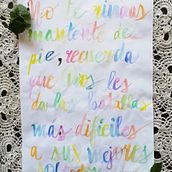 No te rindas
mantente de
pie, recuerda
que Dios les
da las batallas
más difíciles
a sus mejores